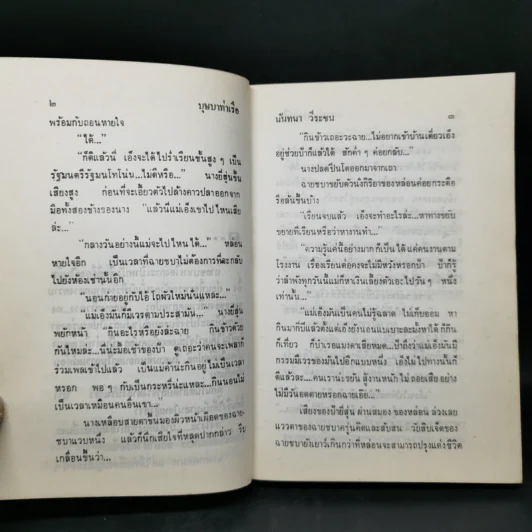 ๒
บุษบาท่าเรือ
พร้อมกับถอนหายใจ
"ได้..."
"ก็ดีแล้วนี่ เอ็งจะได้ไปร่ำเรียนชั้นสูง ๆ เป็น
รัฐมนตรีรัฐมนโทโน่น...ไม่ดีหรือ..." นางยี่สุ่นขึ้น
เสียงสูง ก่อนที่จะเอี้ยวตัวไปล้างคาวปลาออกจาก
มือทั้งสองข้างของนาง "แล้วนี่แม่เอ็งเขาไปไหนเสีย
ล่ะ..."
"กลางวันอย่างนี้แม่จะไปไหนได้..." หล่อน
หายใจอีก เป็นเวลาที่ฉายชบาไม่ต้องการที่จะกลับ
ไปยังห้องเช่านั้นอีก
"นอนก่ายอยู่กับไอ้โถผัวใหม่นั่นแหละ..."
"แม่เอ็งมันก็มีเวรตามประสามัน..." นางยี่สุ่น
พยักหน้า "กินอะไรหรือยังล่ะฉาย กินข้าวด้วย
กันไหมล่ะ...นี่น่ะมื้อเช้าของป้า ดูเถอะว่าคนจะเพลก็
ร่วมเพลเข้าไปแล้ว เป็นแม่ค้าน่ะกินอยู่ไม่เป็นเวลา
หรอก พอ ๆ กับเป็นกะหรี่น่ะแหละ...กินนอนไม่
เป็นเวลาเหมือนคนอื่นเขา..."
นางเหลือบสายตาขึ้นมองผิวหน้าเผือดของฉาย-
ชบาแวบหนึ่ง แล้วก็นึกเสียใจที่หลุดปากกล่าว รีบ
เกลื่อนขึ้นว่า...
นันทนา วีระชน
๓
"กินข้าวเถอะวะฉาย...ไม่อยากเข้าบ้านเดี๋ยวเอ็ง
อยู่ช่วยป้าก็แล้วได้ สักค่ำ ๆ ค่อยกลับ..."
นางปลดปิ่นโตออกมาจากเถา
ฉายชบาขยับตัวนั่งกิริยาของหล่อนค่อยกระตือ
รือล้นขึ้นบ้าง
"เรียนจบแล้ว เอ็งจะทำอะไรล่ะ...หาทางขยับ
ขยายที่เรียนหรือว่าหางานทำ..."
"ความรู้แค่นี้อย่างมากก็เป็นได้แค่คนงานตาม
โรงงาน เรื่องเรียนต่อคงจะไม่มีหวังหรอกป้า ป้าก็รู้
ว่าลำพังทุกวันนี้แม่ก็หาเงินเลี้ยงตัวเองไปวัน ๆ หนึ่ง
เท่านั้น..."
"แม่เอ็งมันเป็นคนไม่รู้ฉลาด ไม่เก็บออม หา
กินมากี่ปีแล้วตั้งแต่เอ็งยังนอนแบเบาะละมั้งหาได้ก็กิน
ก็เที่ยว ก็บำเรอแมงดาเสียหมด...ป้าถึงว่าแม่เอ็งมันมี
กรรมมีเวรของมันไปอีกแบบหนึ่ง เอ็งไม่ไปทางนั้นก็
ดีแล้วล่ะ...คนเราน่ะขยัน สู้งานหนัก ไม่ถอยเสีย อย่าง
ไม่มีวันอดตายหรอกฉายเอ๊ย..."
เสียงของป้ายี่สุ่น ผ่านสมอง ของหล่อน ล่วงเลย
แววตาของฉายชบาครุ่นคิดและสับสน วัยสิบเจ็ดของ
ฉายชบายังเยาว์เกินกว่าที่หล่อนจะสามารถปรุงแต่งชีวิต